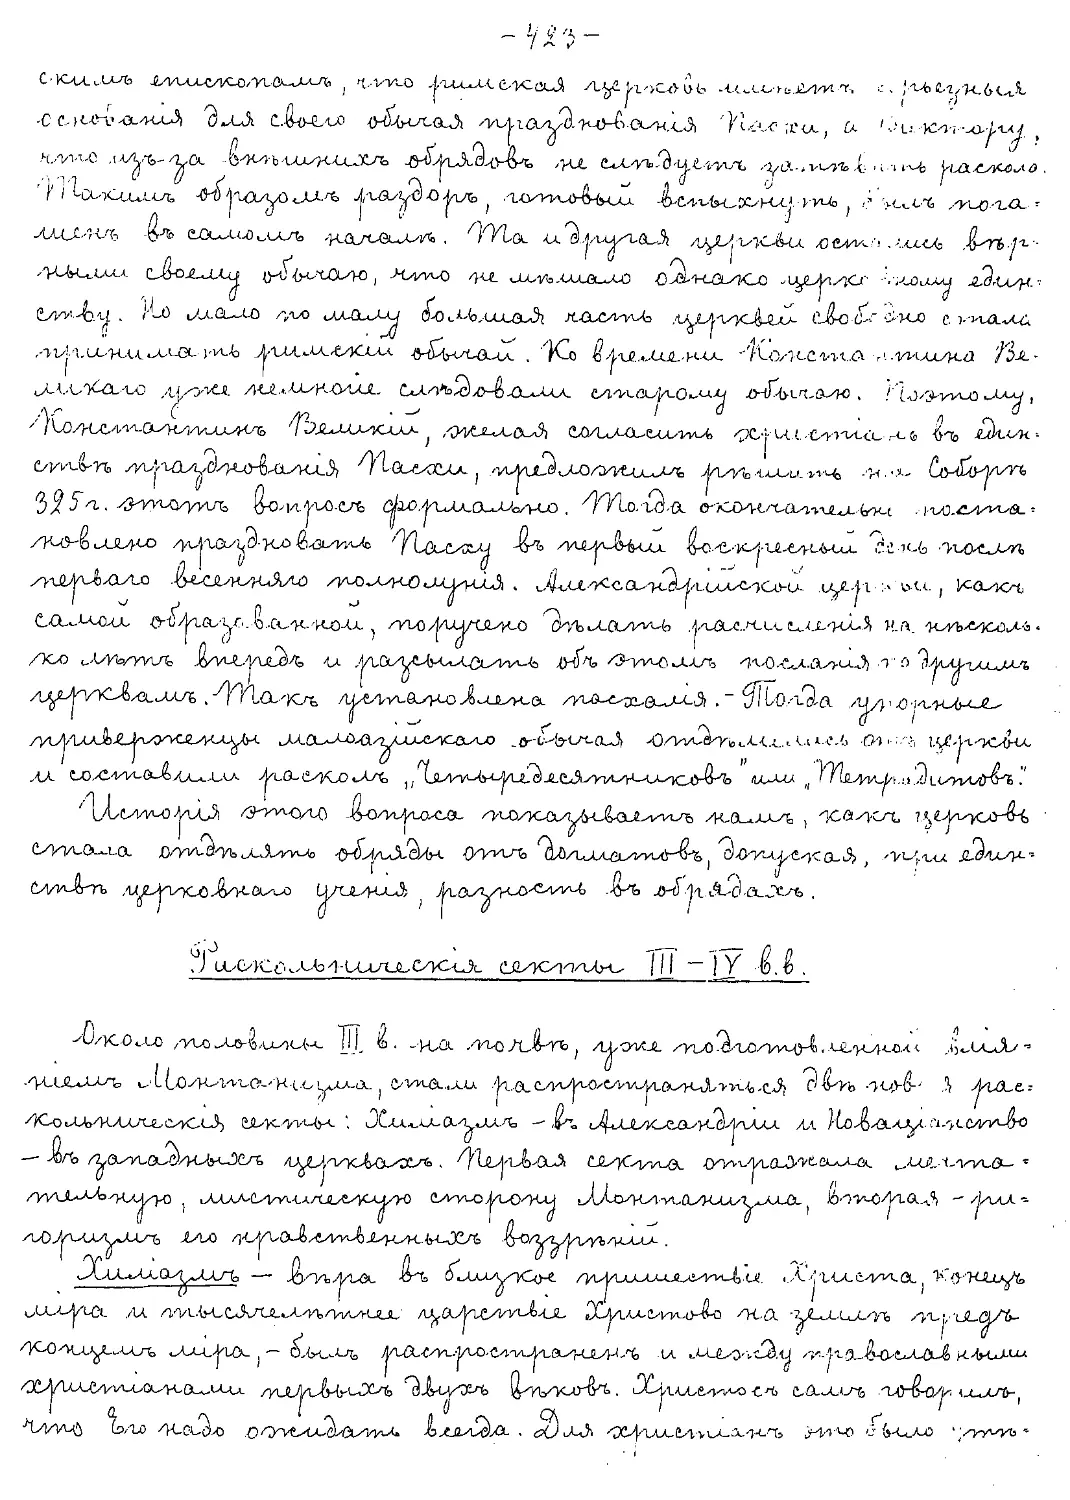 -423-
скимъ епископамъ, что римская церковь имѣетъ серьезныя
основанія для своего обычая празднованія Пасхи, а Виктору,
что изъ-за внѣшнихъ обрядовъ не слѣдуетъ затѣвать раскола.
Такимъ образомъ раздоръ, готовый вспыхнуть, былъ пога=
шенъ въ самомъ началѣ. Та и другая церкви остались вѣр-
ными своему обычаю, что не мѣшало однако церковному един=
ству. Но мало по малу большая часть церквей свободно стала
принимать римскій обычай. Ко времени Константина Ве-
ликаго уже немногіе слѣдовали старому обычаю. Поэтому,
Константинъ Великій, желая согласить христіанъ въ един=
ствѣ празднованія Пасхи, предложилъ рѣшить на Соборѣ
325 г. этотъ вопросъ формально. Тогда окончательно поста=
новлено праздновать Пасху въ первый воскресный день послѣ
перваго весенняго полнолунія. Александрійской церкви, какъ
самой образованной, поручено дѣлать расчисленія на нѣсколь-
ко лѣтъ впередъ и разсылать объ этомъ посланія по другимъ
церквамъ. Такъ установлена пасхалія.- Тогда упорные
приверженцы малоазійскаго обычая отдѣлились отъ церкви
и составили расколъ „Четыредесятниковъ" или „Тетрадитовъ."
Исторія этого вопроса показываетъ намъ, какъ церковь
стала отдѣлять обряды отъ догматовъ, допуская, при един=
ствѣ церковнаго ученія, разность въ обрядахъ.
Раскольническія секты III-IV в.в.
Около половины III в. на почвѣ, уже подготовленной влія=
ніемъ Монтанизма, стали распространяться двѣ новыя рас=
кольническія секты: Хиліазмъ - въ Александріи и Новаціанство
- въ западныхъ церквахъ. Первая секта отражала мечта=
тельную, мистическую сторону Монтанизма, вторая - ри=
горизмъ его нравственныхъ воззрѣній.
Хиліазмъ - вѣра въ близкое пришествіе Христа, конецъ
міра и тысячелѣтнее царствіе Христово на землѣ предъ
концемъ міра, - былъ распространенъ и между православными
христіанами первыхъ двухъ вѣковъ. Христосъ самъ говорилъ,
что Его надо ожидать всегда. Для христіанъ это было утѣ=